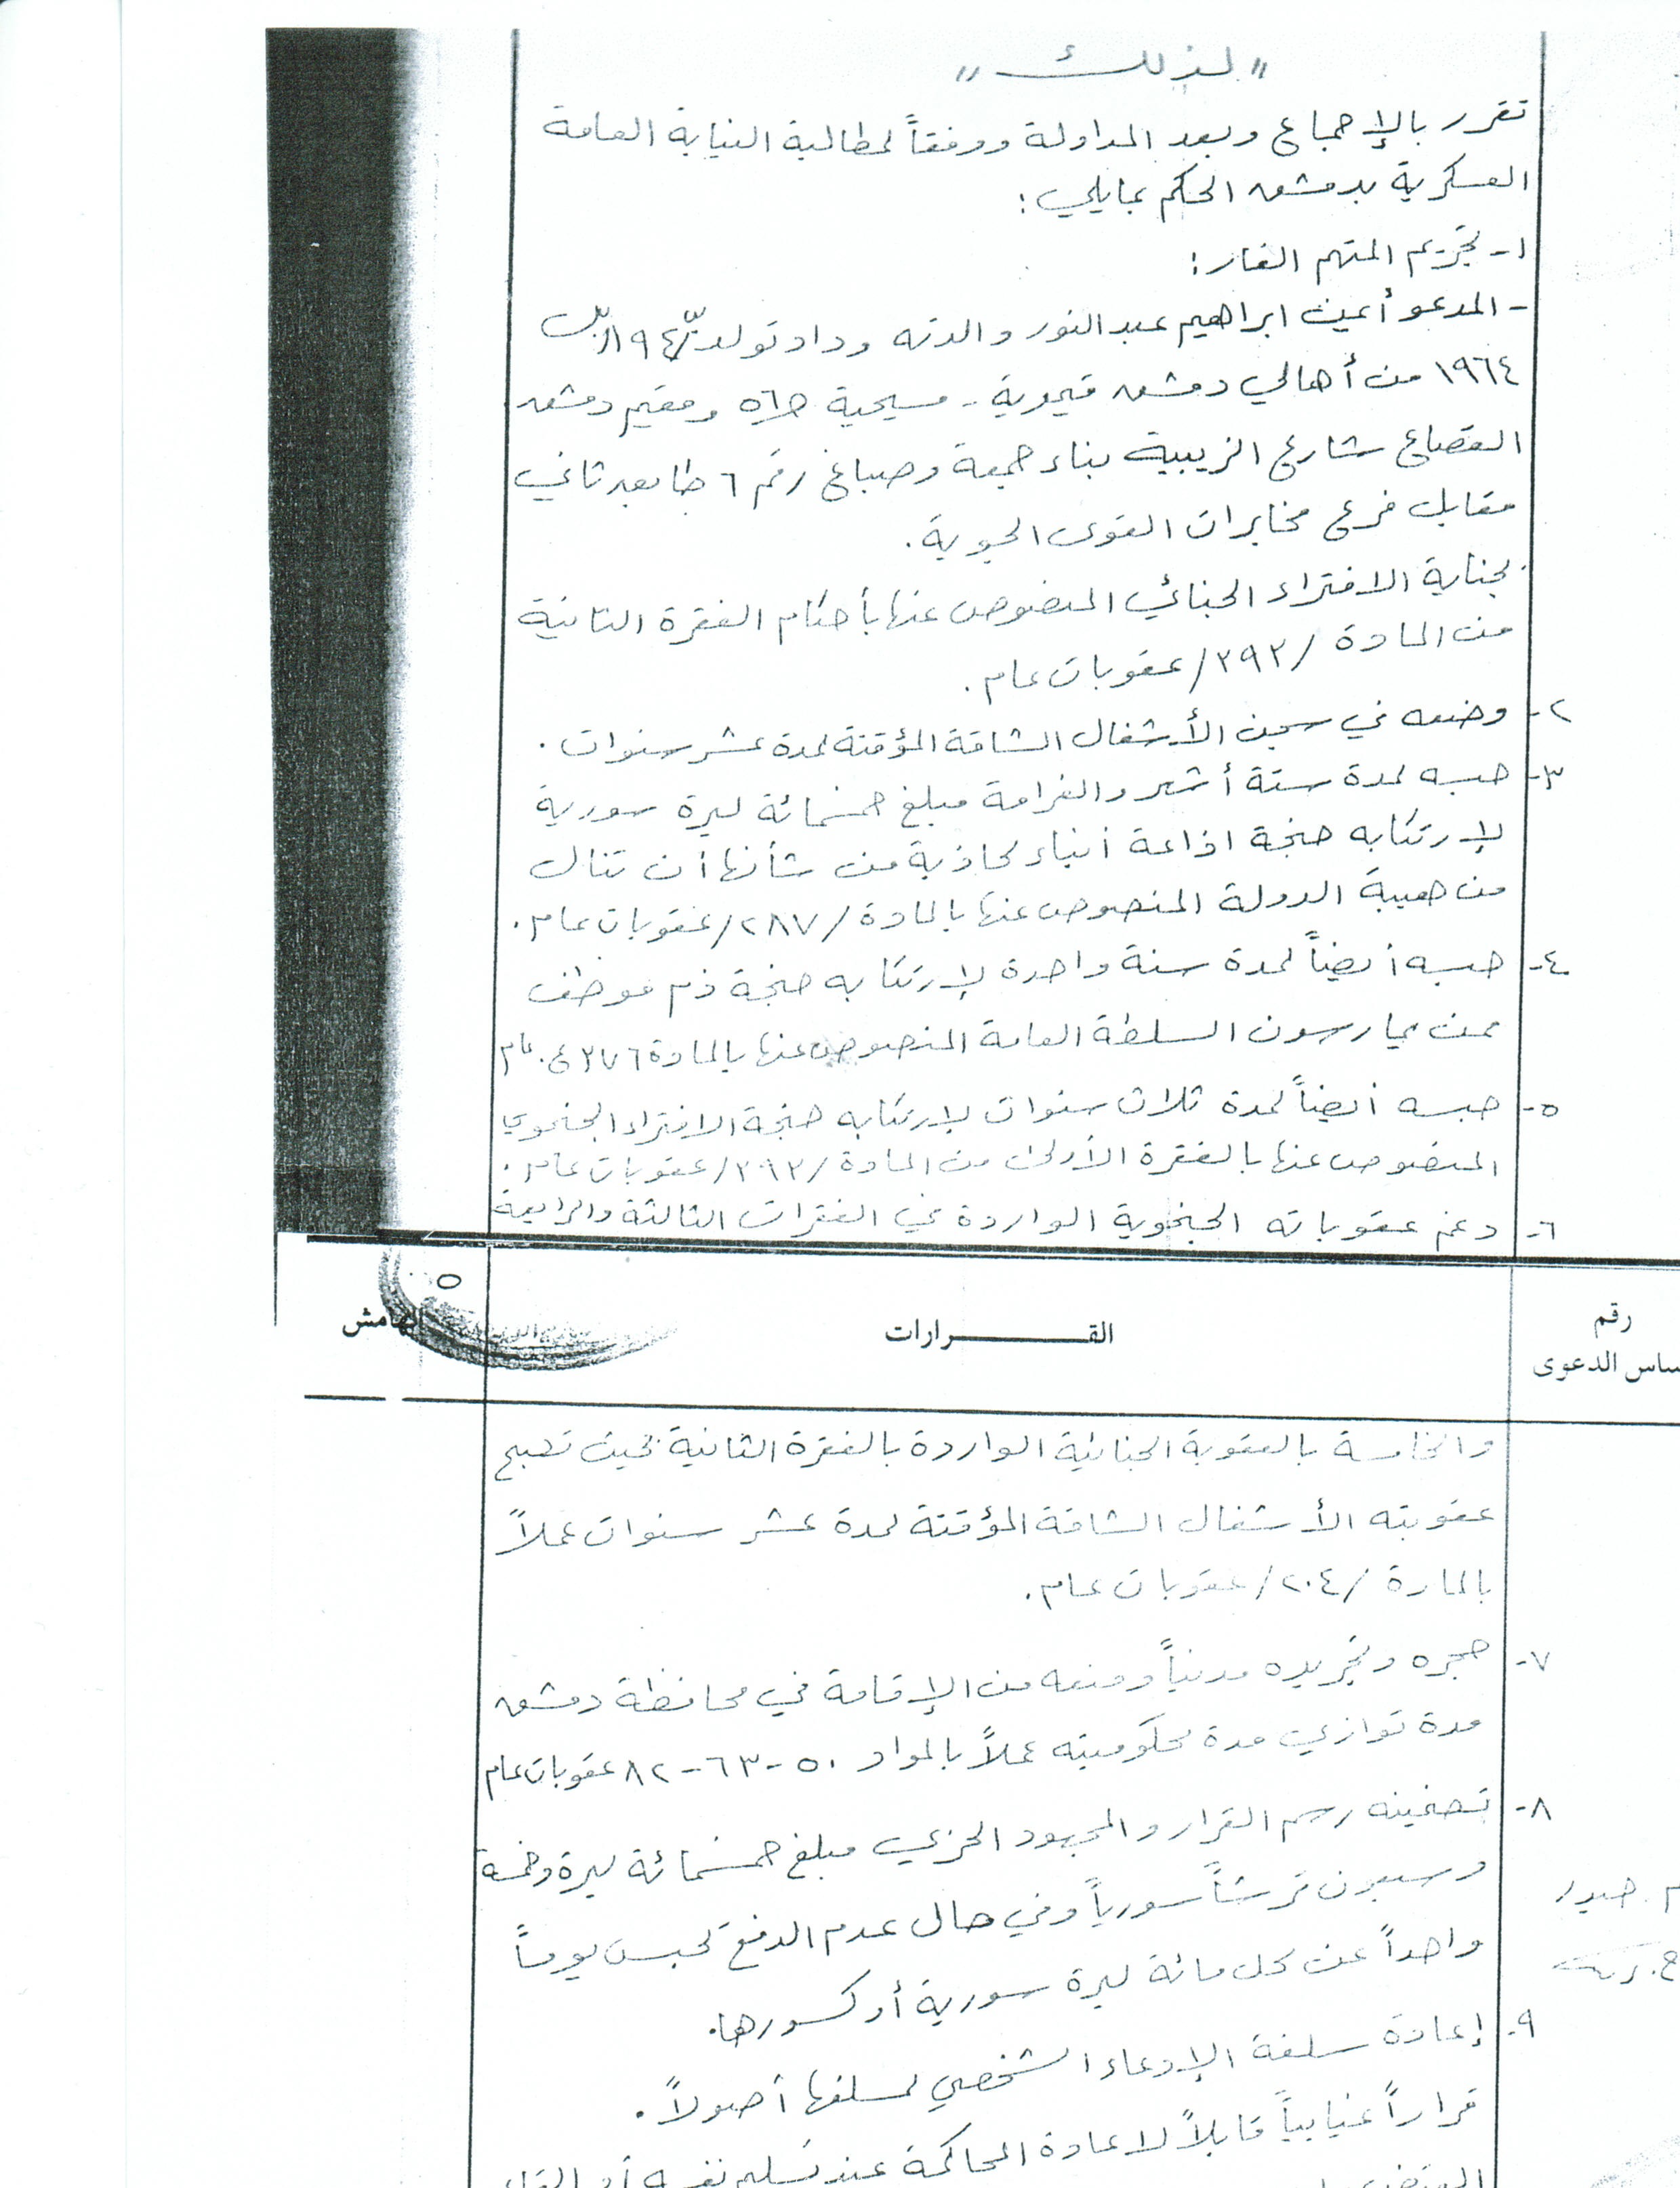 " لذلك "
تقرر بالإجماع وبعد المداولة ووفقاً لمطالبة النيابة العامة
العسكرية بدمشق الحكم بمايلي :
١- تجريم المتهم الفار :
- المدعو أيمن ابراهيم عبد النور والدته وداد تولد
١٩٦٤ من أهالي دمشق قيمرية - مسيحية خ/٥٦ ومقيم دمشق
القصاع شارع الزيبية بناء جمعة وصباغ رقم ٦ طابق ثاني
مقابل فرع مخابرات القوى الجوية .
بجناية الافتراء الجنائي المنصوص عنها بأحكام الفقرة الثانية
من المادة /٣٩٣/ عقوبات عام .
٢- وضعه في سجن الأشغال الشاقة المؤقتة لمدة عشر سنوات .
٣- حبسه لمدة ستة أشهر والغرامة مبلغ خمسمائة ليرة سورية
لإرتكابه جنحة اذاعة أنباء كاذبة من شأنها أن تنال
من هيبة الدولة المنصوص عنها بالمادة /٢٨٧/ عقوبات عام .
٤- حبسه أيضاً لمدة سنة واحدة لإرتكابه جنحة ذم موظف
ممن يمارسون السلطة العامة المنصوص عنها بالمادة ٣٧٦ ع. عام
٥- حبسه أيضاً لمدة ثلاث سنوات لإرتكابه جنحة الافتراء الجنحوي
المنصوص عنها بالفقرة الأولى من المادة /٣٩٣/ عقوبات عام .
٦- دغم عقوباته الجنحوية الواردة في الفقرات الثالثة والرابعة
٥
رقم
القـــــــــرارات
الهامش
ساس الدعوى
والخامسة بالعقوبة الجنائية الواردة بالفقرة الثانية بحيث تصبح
عقوبته الأشغال الشاقة المؤقتة لمدة عشر سنوات عملاً
بالمادة /٢٠٤/ عقوبات عام .
٧- حجره وتجريده مدنياً ومنعه من الإقامة في محافظة دمشق
مدة توازي مدة محكوميته عملاً بالمواد ٥٠-٦٣-٨٢ عقوبات عام
٨- تضمينه رسم القرار والمجهود الحربي مبلغ خمسمائة ليرة وخمسة
وسبعون قرشاً سورياً وفي حال عدم الدفع تحبس يوماً
واحداً عن كل مائة ليرة سورية أو كسورها .
٩- إعادة سلفة الإدعاء الشخصي لمسلفها أصولاً .
قراراً غيابياً قابلاً لاعادة المحاكمة عند تسليم نفسه أو القاء